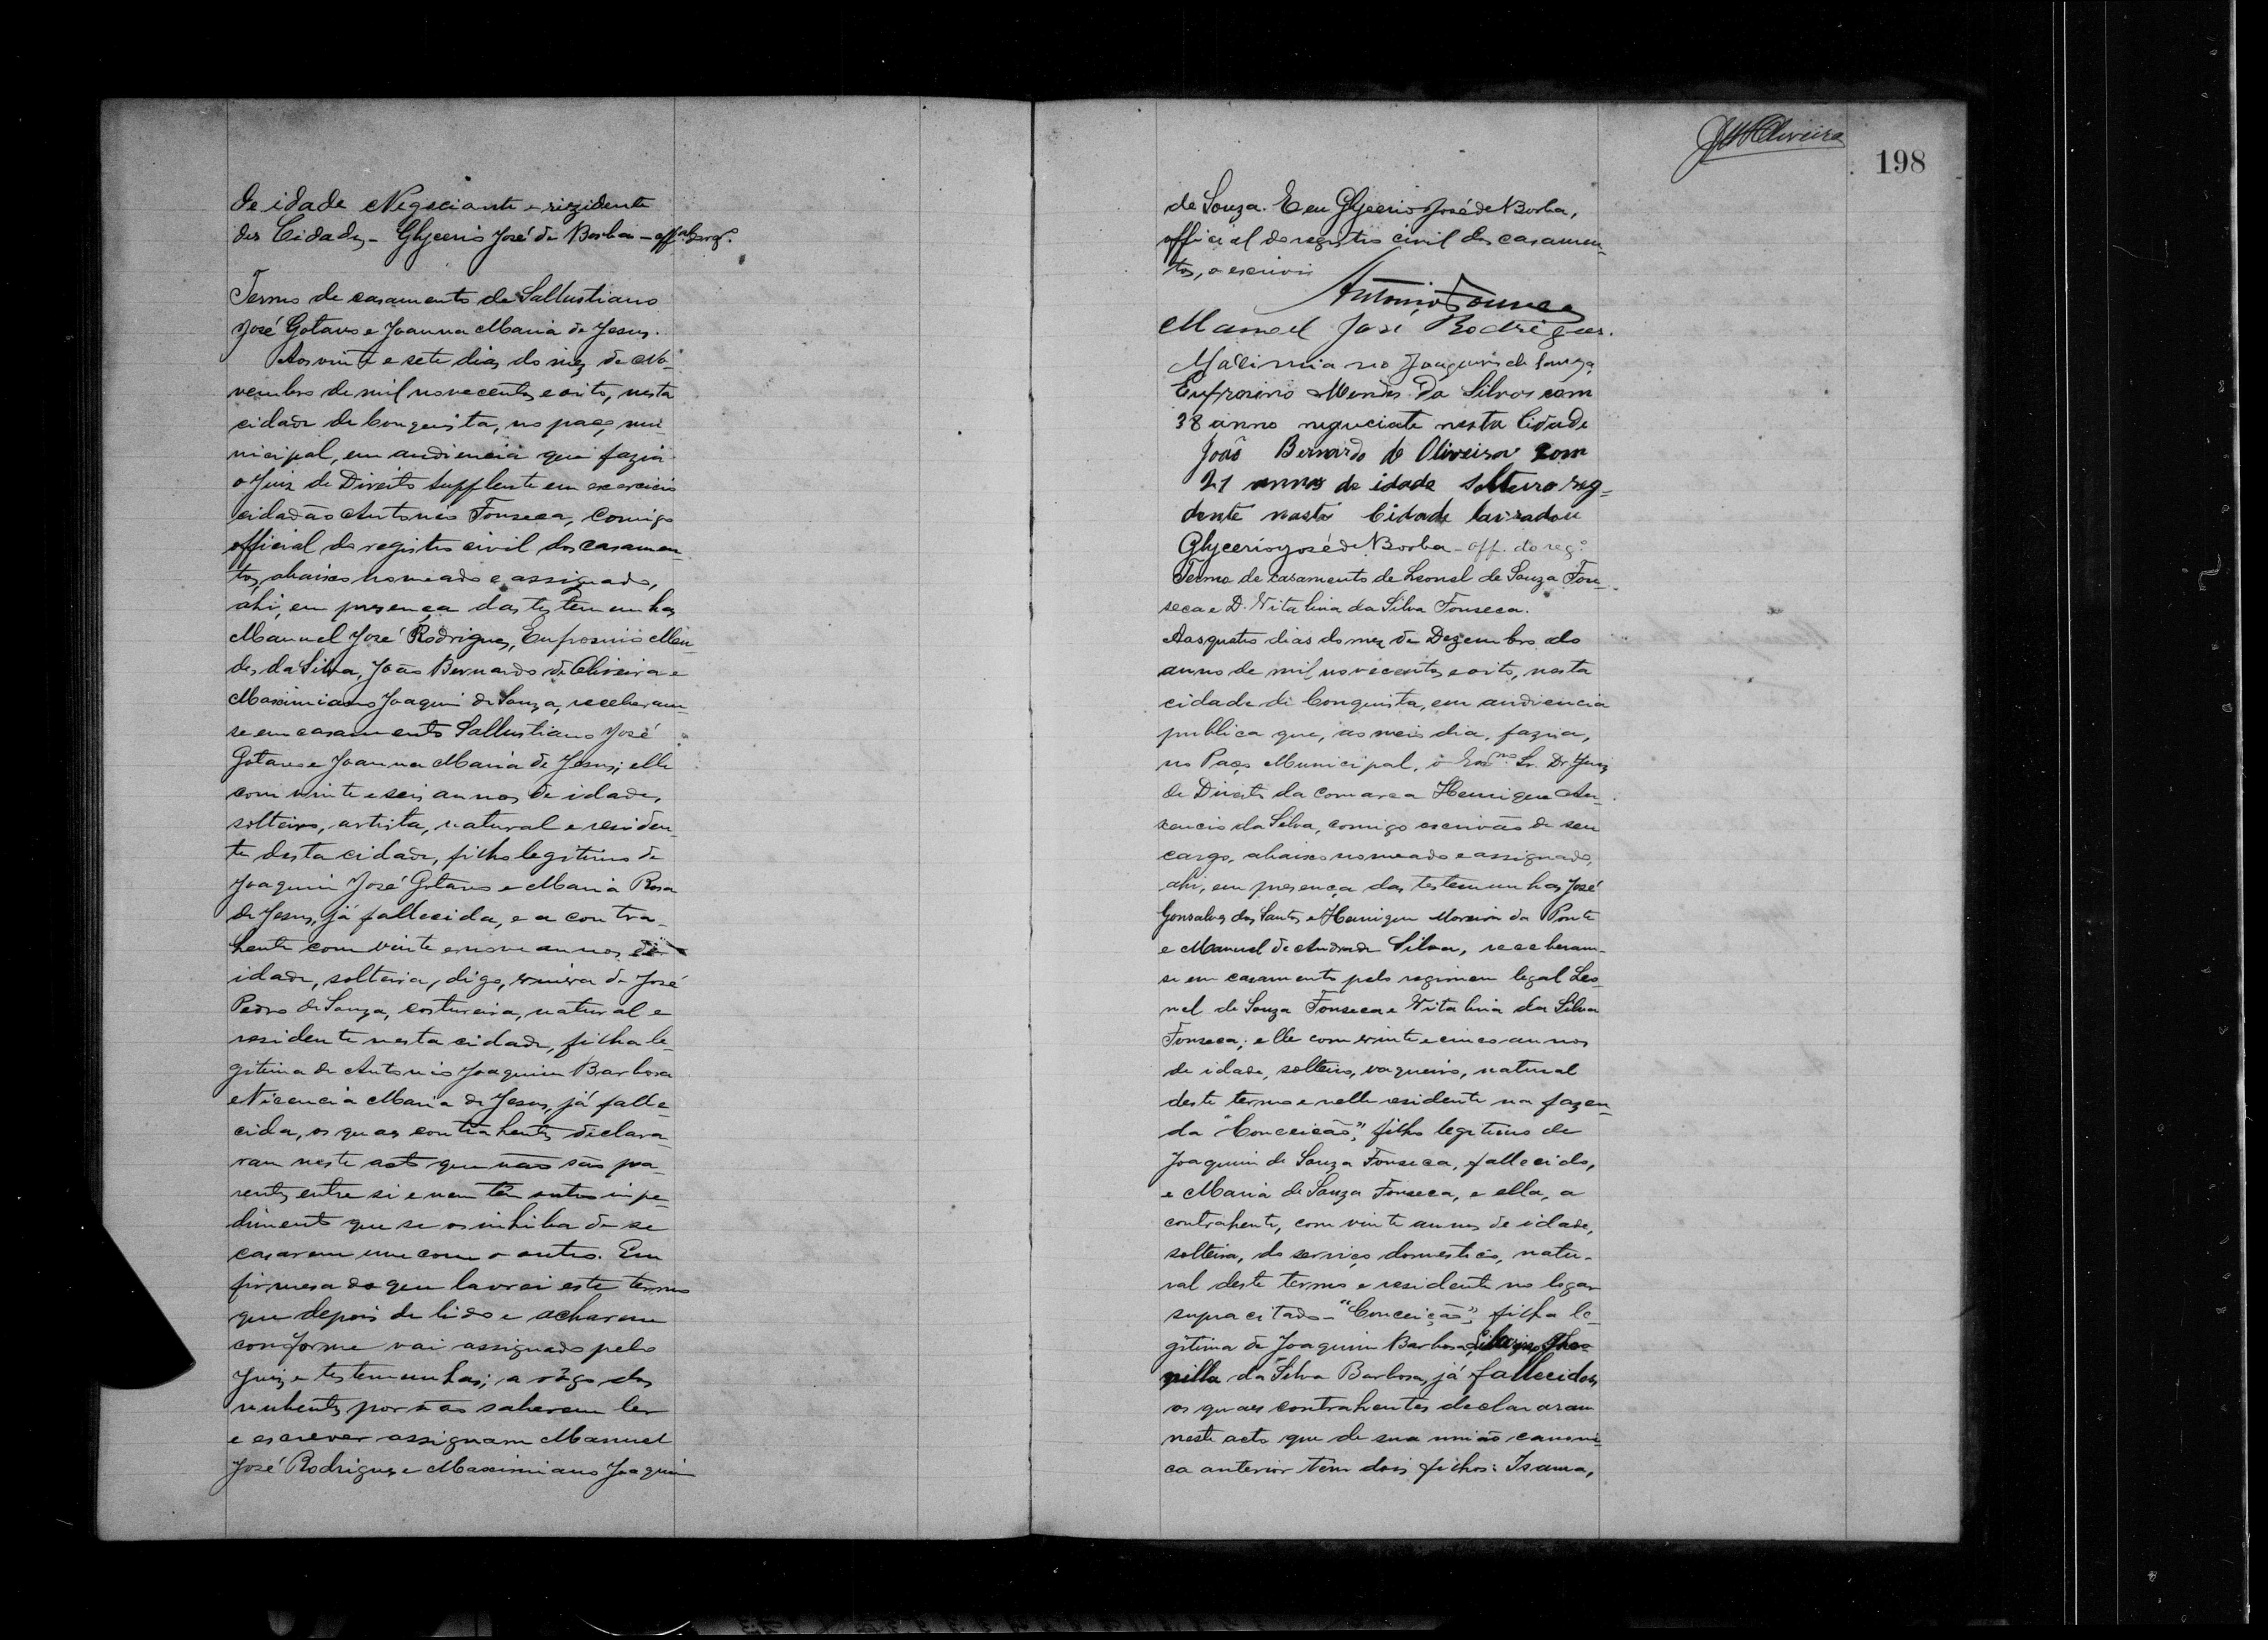 de idade Negociante e rezidente
des Cidade,- Glycerio José de Borba - offal do regº.
Termo de casamento de Sallustiano
José Gotares e Joanna Maria de Jesus.
Aos vinte e sete dias do mez de No-
vembro de mil novecentos e oito, nesta
cidade de Conquista, no paço mu-
nicipal, em audiencia que fazia
o Juiz de Direito Supplente em exercicio
cidadão Antonio Fonseca, Comigo
official do registro civil dos casamen-
tos, abaixo nomeado e assignado,
ahi, em presença das testemunhas,
Manuel José Rodrigues, Eufrosino Men-
des da Silva, João Bernardo de Oliveira e
Maximiano Joaquim de Souza, receberam-
se em casamento Sallustiano José
Gotares e Joanna Maria de Jesus; elle
com vinte e seis annos de idade,
solteiro, artista, natural e residen-
te desta cidade, filho legitimo de
Joaquim José Gotares e Maria Rosa
de Jesus, já fallecida, e a contra-
hente com vinte e nove annos de
idade, solteira, digo, viuva de José
Pedro de Souza, costureira, natural e
residente nesta cidade, filha le-
gitima de Antonio Joaquim Barbosa
e Vicencia Maria de Jesus, já falle-
cida, os quaes contrahentes declara-
ram neste acto que não são pa-
rentes entre si e nem têm outro impe-
dimento que se os inhiba de se
casarem um com o outro. Em
firmesa do que lavrei este termo
que depois de lido e acharem
conforme vai assignado pelo
Juiz e testemunhas; a rôgo dos
nubentes por não saberem ler
e escrever assignam Manuel
José Rodrigues e Maximiano Joaquim
JMOliveira
198
de Souza. E eu Glycerio José de Borba,
official do registro civil dos casamen-
tos, o escrivi
Antonio Fonseca
Manoel José Rodrigues.
Macimia no Joaquim de Souza
Eufrosino Mendes Da Silva com
38 anno neguciate nesta Cidade
João Bernardo de Oliveira com
21 annos de idade Solteiro rez-
dente nasta Cidade lavradou
Glycerio José de Borba - off. do reg.º
Termo de casamento de Leonel de Souza Fon-
seca e D. Vitalina da Silva Fonseca.
Aos quatro dias do mez de Dezembro do
anno de mil novecentos e oito, nesta
cidade de Conquista, em audiencia
publica que, ao meio dia, fazia,
no Paço Municipal, o Exmo. Sr. Dr. Juiz
de Direito da Comarca Henrique Au-
xencio da Silva, comigo escrivão de seu
cargo, abaixo nomeado e assignado,
ahi, em presença das testemunhas José
Gonsalves dos Santos e Henrique Moreira da Ponte
e Manuel de Andrade Silva, receberam-
se em casamento pelo regimen legal Leo-
nel de Souza Fonseca e Vitalina da Silva
Fonseca; elle com vinte e cinco annos
de idade, solteiro, vaqueiro, natural
deste termo e nelle residente na fazen-
da "Conceicão", filho legitimo de
Joaquim de Souza Fonseca, fallecido,
e Maria de Souza Fonseca, e ella, a
contrahente, com vinte annos de idade,
solteira, do serviço domestico, natu-
ral deste termo e residente no logar
supracitado - "Conceição", filha le-
gitima de Joaquim Barbosa
da Silva Barbosa, já fallecidos,
os quaes contrahentes declararam
neste acto que de sua união canoni-
ca anterior têm dois filhos: Isaura,